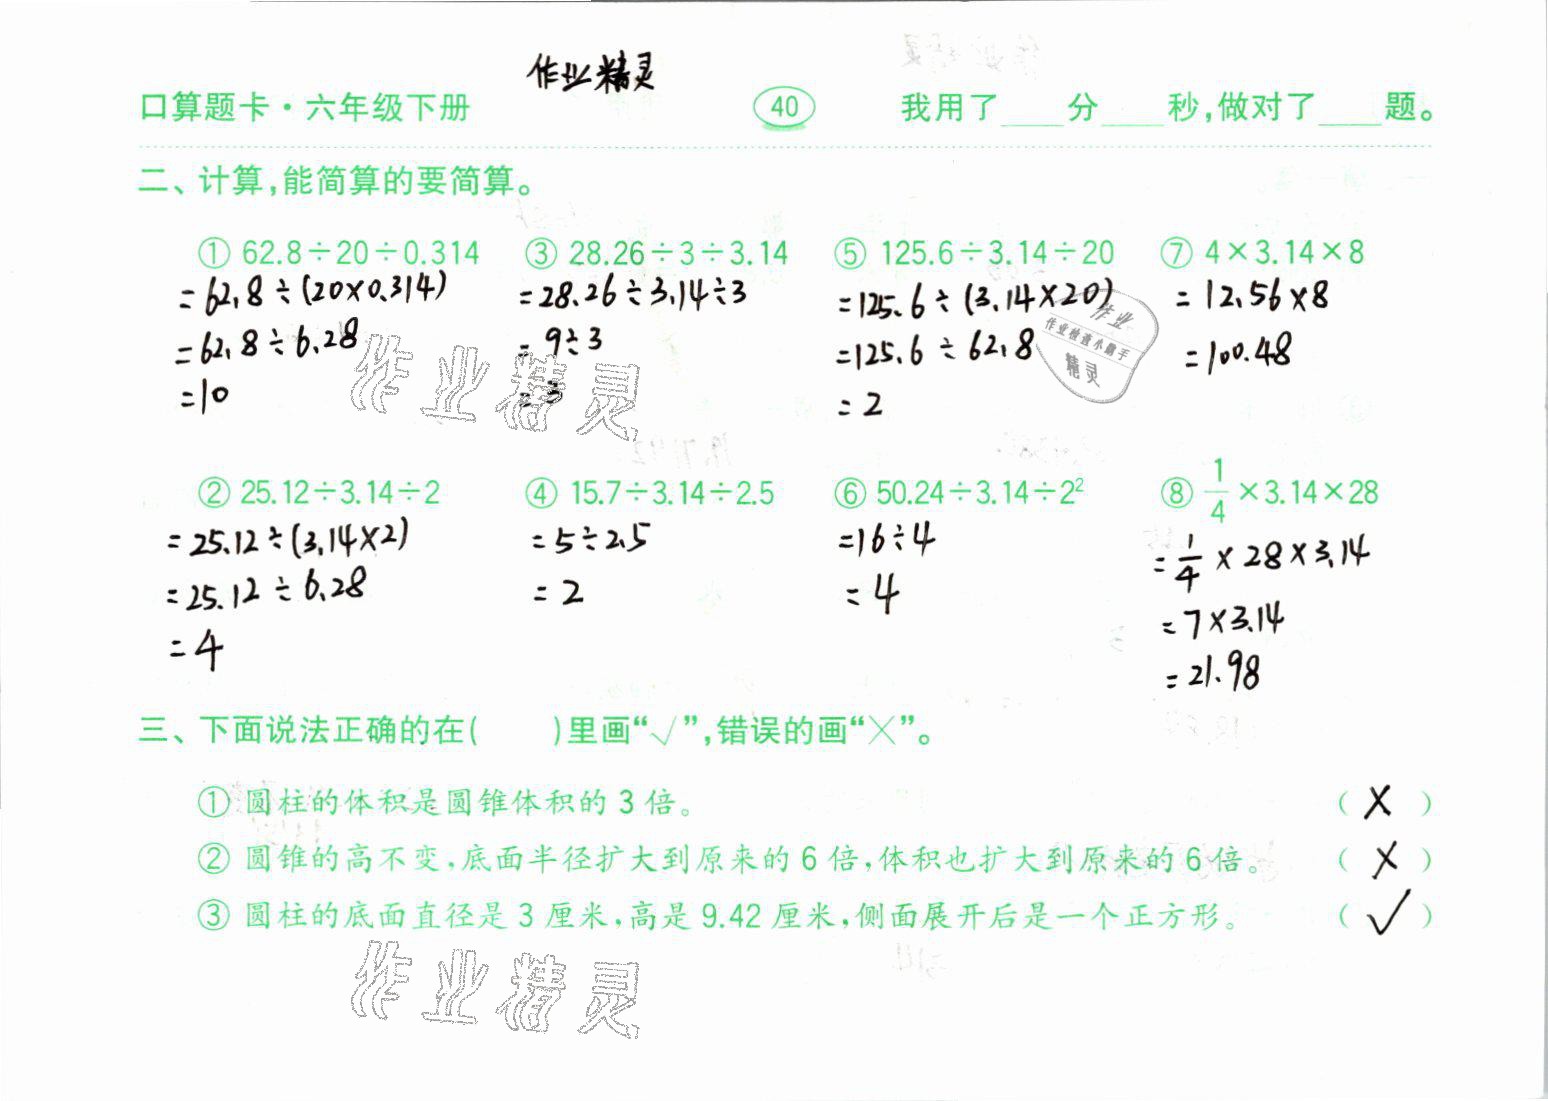 作业精灵
口算题卡·六年级下册 40 我用了____分____秒,做对了____题。
二、计算,能简算的要简算。
① 62.8÷20÷0.314 ③ 28.26÷3÷3.14 ⑤ 125.6÷3.14÷20 ⑦ 4×3.14×8
=62.8÷(20×0.314) =28.26÷3.14÷3 =125.6÷(3.14×20) =12.56×8
=62.8÷6.28 =9÷3 =125.6÷62.8 =100.48
=10 =3 =2
作业
作业检查小助手
精灵
作业精灵
② 25.12÷3.14÷2 ④ 15.7÷3.14÷2.5 ⑥ 50.24÷3.14÷2² ⑧ 1/4×3.14×28
=25.12÷(3.14×2) =5÷2.5 =16÷4 =1/4×28×3.14
=25.12÷6.28 =2 =4 =7×3.14
=4 =21.98
三、下面说法正确的在( )里画“√”,错误的画“×”。
① 圆柱的体积是圆锥体积的3倍。 (×)
② 圆锥的高不变,底面半径扩大到原来的6倍,体积也扩大到原来的6倍。 (×)
③ 圆柱的底面直径是3厘米,高是9.42厘米,侧面展开后是一个正方形。 (√)
作业精灵